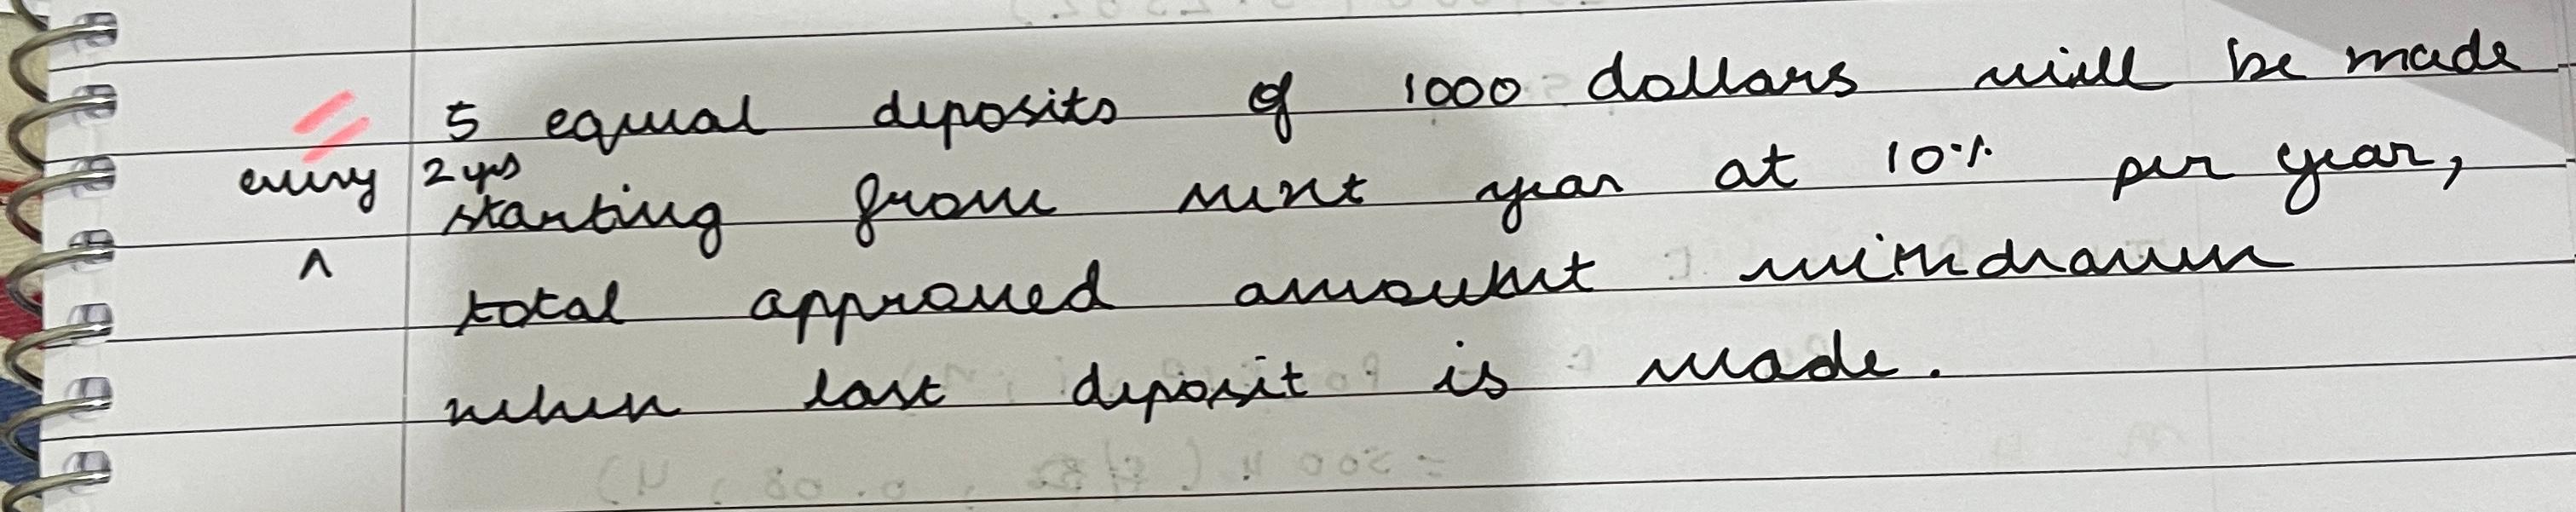 5 equal deposits of 1000 dollars will be made
every 2 yrs
starting from next year at 10% per year,
^
total approved amount withdrawn
when last deposit is made.